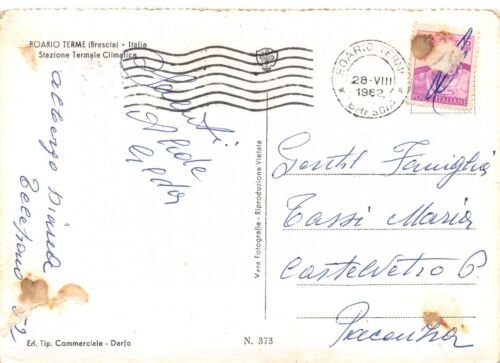 BOARIO TERME (Brescia) - Italia
Stazione Termale Climatica
Saluti
Alide
Gilda
albergo Diana
52
Vera Fotografia - Riproduzione Vietata
Ed. Tip. Commerciale - Darfo
N. 373
BOARIO TERME
28-VIII
1962
BRESCIA
15
POSTE ITALIANE
Gentil Famiglia
Tassi Maria
Castelvetro P.
Piacenza